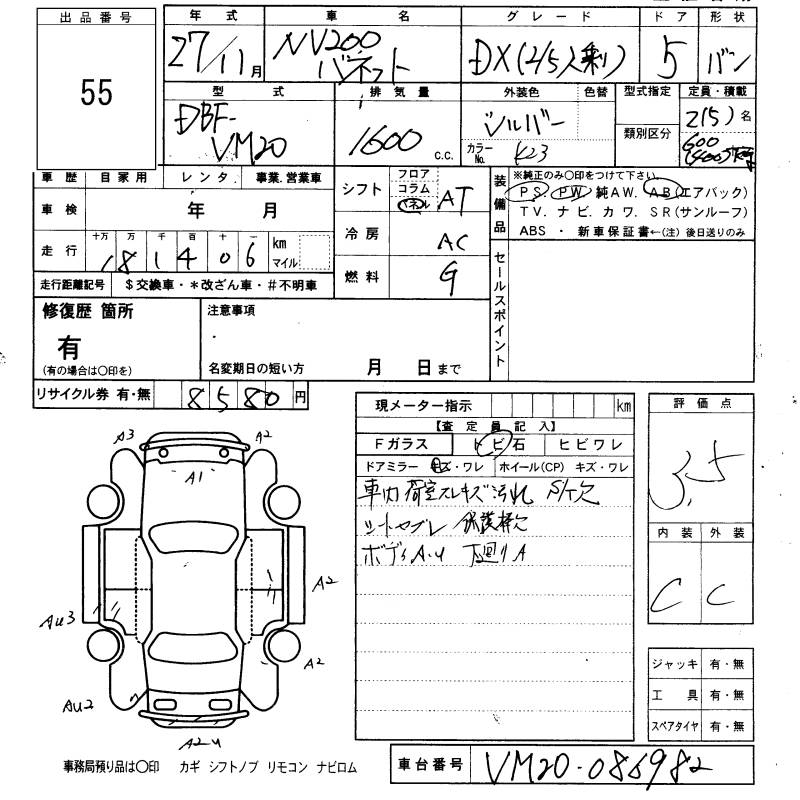 出品番号 年式 車名 グレード ドア 形状
55 27/11月 NV200 バネット DX(2/5人乗) 5 バン
型式 排気量 外装色 色替 型式指定 定員・積載
DBF-VM20 1600 c.c. シルバー 類別区分 2(5)名
カラーNo. K23 600(400)kg
車歴 自家用 レンタ. 事業.営業車 シフト フロア コラム パネル AT
装備品 ※純正のみ○印をつけて下さい。
PS PW 純AW. AB(エアバック)
車検 年 月
TV. ナビ. カワ. SR(サンルーフ)
冷房 AC ABS ・ 新車保証書←(注) 後日送りのみ
走行 十万 万 千 百 十 km マイル
181406
燃料 G
セールスポイント
走行距離記号 $交換車・*改ざん車・#不明車
修復歴 箇所 注意事項
有
(有の場合は○印を) 名変期日の短い方 月 日まで
リサイクル券 有・無 8580円
現メーター指示 km 評価点
【査定員記入】 3.5
Fガラス トビ石 ヒビワレ
ドアミラー キズ・ワレ ホイール(CP) キズ・ワレ
車内 荷室スレキズ汚れ S/T欠
シートヤブレ 保護棒欠
ボディA.U 下回りA
内装 外装
C C
A3 A2
A1
A2
Au3
A2
Au2
A2-U
ジャッキ 有・無
工具 有・無
スペアタイヤ 有・無
事務局預り品は○印 カギ シフトノブ リモコン ナビロム
車台番号 VM20-086982